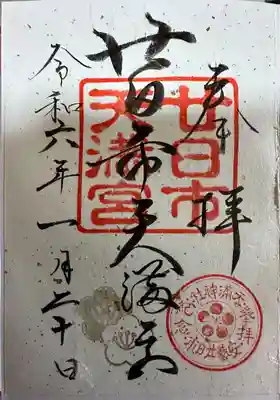 奉拝
廿日市天満宮
廿日市
天満宮
令和六年一月二十日